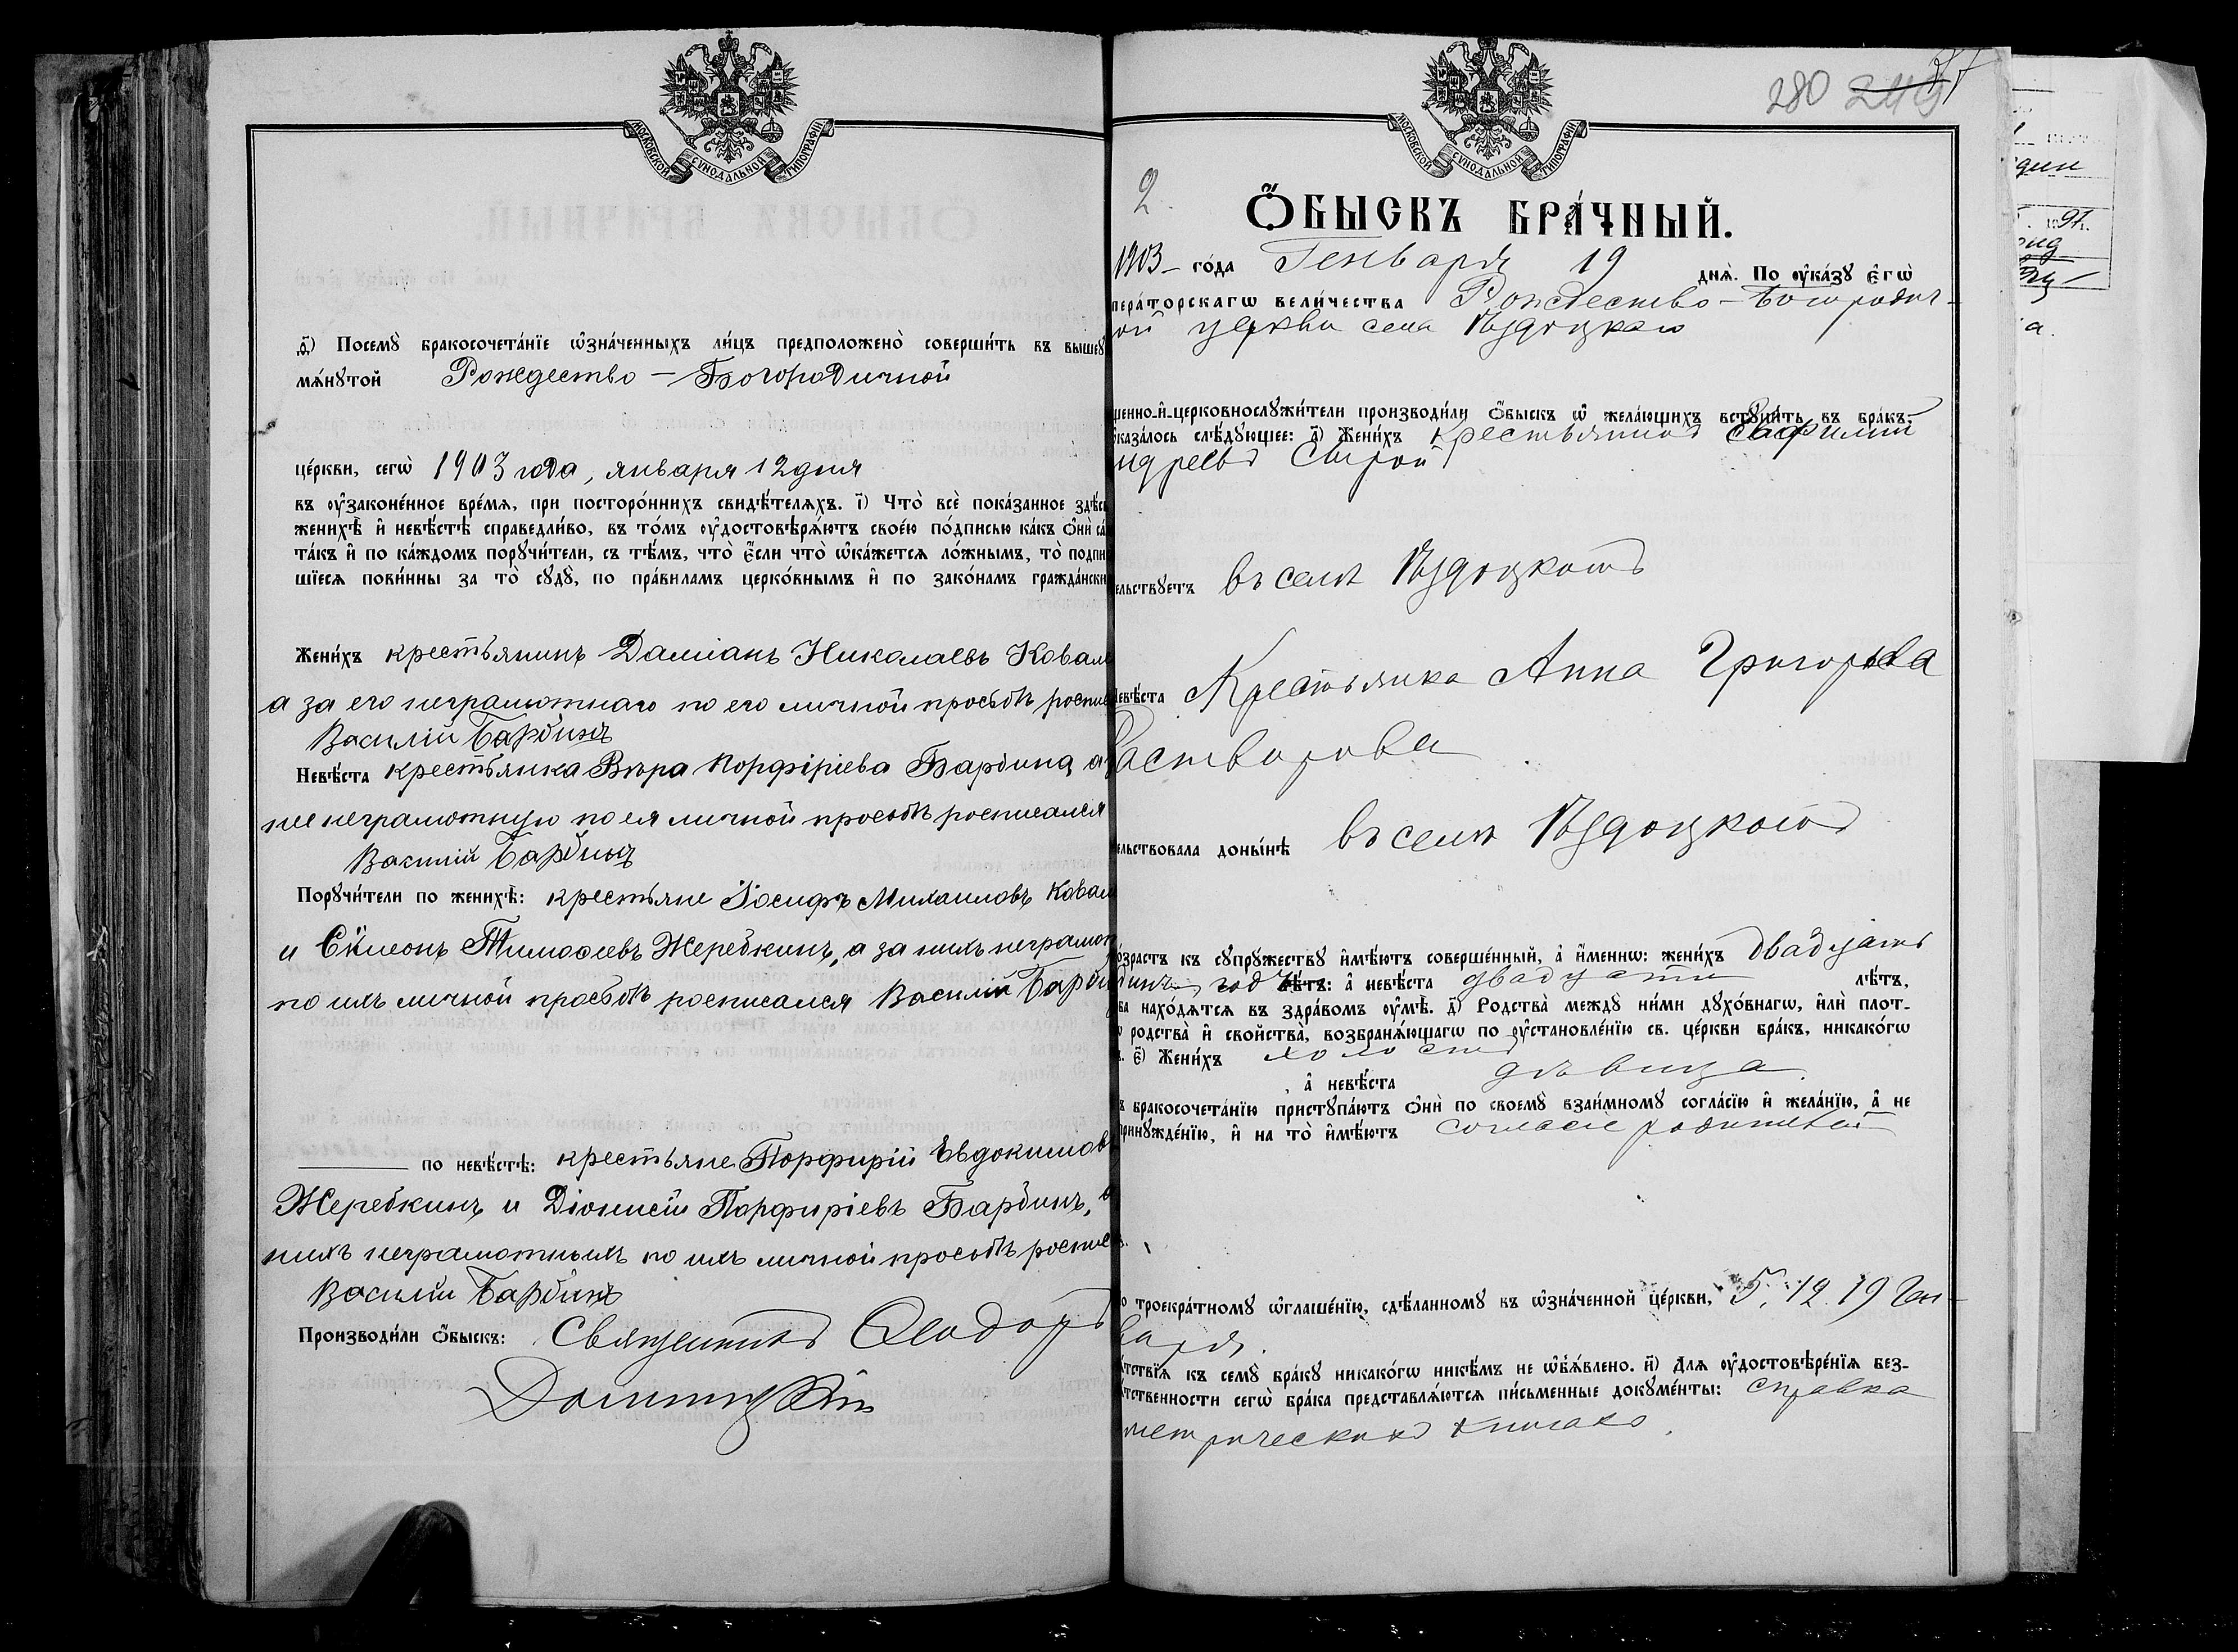 МОСКОВСКОЙ СѴНОДАЛЬНОЙ ТИПОГРАФІИ
ѳ҃) Посемꙋ̀ бракосочета́нїе ѡ҆зна́ченныхъ ли́цъ предположено̀ соверши́ть въ вышеꙋ
мѧ́нꙋтой Рождество – Богородичной
це́ркви, сегѡ̀ 1903 года, января 12 дня
въ ᲂу҆законе́нное вре́мѧ, при посторо́ннихъ свидѣ́телѧхъ. і҃) Что̀ всѐ пока́занное здѣ́сь
женихѣ̀ и҆ невѣ́стѣ справедли́во, въ то́мъ ᲂу҆достовѣрѧ́ютъ свое́ю по́дписью ка́къ ѻ҆нѝ са
та́къ и҆ по ка́ждомъ порꙋчи́тели, съ тѣ́мъ, что̀ є҆́сли что̀ ѡ҆ка́жетсѧ ло́жнымъ, то̀ подпи
шїесѧ пови́нны за то̀ сꙋдꙋ̀, по пра́виламъ церко́внымъ и҆ по зако́намъ гражда́нски
Жени́хъ крестьянинъ Даміанъ Николаевъ Ковал
а за его неграмотнаго по его личной просьбѣ роспис
Василій Бардинъ
Невѣ́ста крестьянка Вѣра Порфіріева Бардина, а
нее неграмотную по ея личной просьбѣ росписался
Василій Бардинъ
Порꙋчи́тели по женихѣ̀: крестьяне Іосифъ Михаиловъ Ковал
и Симеонъ Тимоѳеевъ Жеребкинъ, а за нихъ неграмот
по ихъ личной просьбѣ росписался Василій Барди
по невѣ́стѣ: крестьяне Порфирій Евдокимовъ
Жеребкинъ и Діонисій Порфиріевъ Бардинъ, а
нихъ неграмотныхъ по ихъ личной просьбѣ роспис
Василій Бардинъ
Производи́ли ѻ҆́быскъ: Священникъ Ѳеодоръ
МОСКОВСКОЙ СѴНОДАЛЬНОЙ ТИПОГРАФІИ
280 249
2.
Ѻ҆́БЫСКЪ БРА́ЧНЫЙ.
1903 – го́да Генваря 19 днѧ̀. По ᲂу҆ка́зꙋ є҆гѡ̀
пера́торскагѡ вели́чества Рождество – Богородич-
ой церкви села
щенно-и҆-церковнослꙋжи́тели производи́ли ѻ҆́быскъ ѡ҆ жела́ющихъ встꙋпи́ть въ бра́къ,
ѡказа́лось слѣ́дꙋющее: а҃) Жени́хъ крестьянинъ
ндреевъ Сырой
ельствꙋетъ въ селѣ
Невѣ́ста Крестьянка Анна Григорьева
Растворова
ельствовала доны́нѣ въ селѣ
о́зрастъ къ сꙋпрꙋ́жествꙋ и҆мѣ́ютъ соверше́нный, а҆ и҆́меннѡ: жени́хъ двадцать
одинъ год лѣ́тъ: а҆ невѣ́ста двадцати лѣ́тъ,
ба нахо́дѧтсѧ въ здра́вомъ ᲂу҆мѣ̀. д҃) Родства̀ междꙋ̀ ни́ми дꙋхо́внагѡ, и҆лѝ плот-
ѡ родства̀ и҆ свойства̀, возбранѧ́ющагѡ по ᲂу҆становле́нїю св. це́ркви бра́къ, никако́гѡ
ъ. є҃) Жени́хъ холостъ
, а҆ невѣ́ста дѣвица.
ъ бракосочета́нїю пристꙋпа́ютъ ѻ҆нѝ по своемꙋ̀ взаи́мномꙋ согла́сїю и҆ жела́нїю, а҆ не
принꙋжде́нїю, и҆ на то̀ и҆мѣ́ютъ согласіе родителей
о троекра́тномꙋ ѡ҆глаше́нїю, сдѣ́ланномꙋ въ ѡ҆зна́ченной це́ркви, 5, 12. 19 Ген-
варя.
ѧ́тствїѧ къ семꙋ̀ бра́кꙋ никако́гѡ никѣ́мъ не ѡ҆б̾ѧ́влено. и҃) Длѧ ᲂу҆достовѣре́нїѧ без-
ѧ́тственности сегѡ̀ бра́ка представлѧ́ютсѧ пи́сьменные докꙋме́нты: справка
метрическихъ книгахъ.